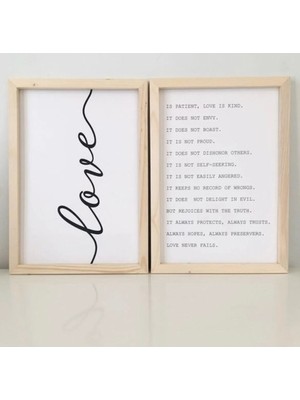 love
IS PATIENT, LOVE IS KIND.
IT DOES NOT ENVY.
IT DOES NOT BOAST.
IT IS NOT PROUD.
IT DOES NOT DISHONOR OTHERS.
IT IS NOT SELF-SEEKING.
IT IS NOT EASILY ANGERED.
IT KEEPS NO RECORD OF WRONGS.
IT DOES NOT DELIGHT IN EVIL.
BUT REJOICES WITH THE TRUTH.
IT ALWAYS PROTECTS, ALWAYS TRUSTS.
ALWAYS HOPES, ALWAYS PRESERVERS.
LOVE NEVER FAILS.